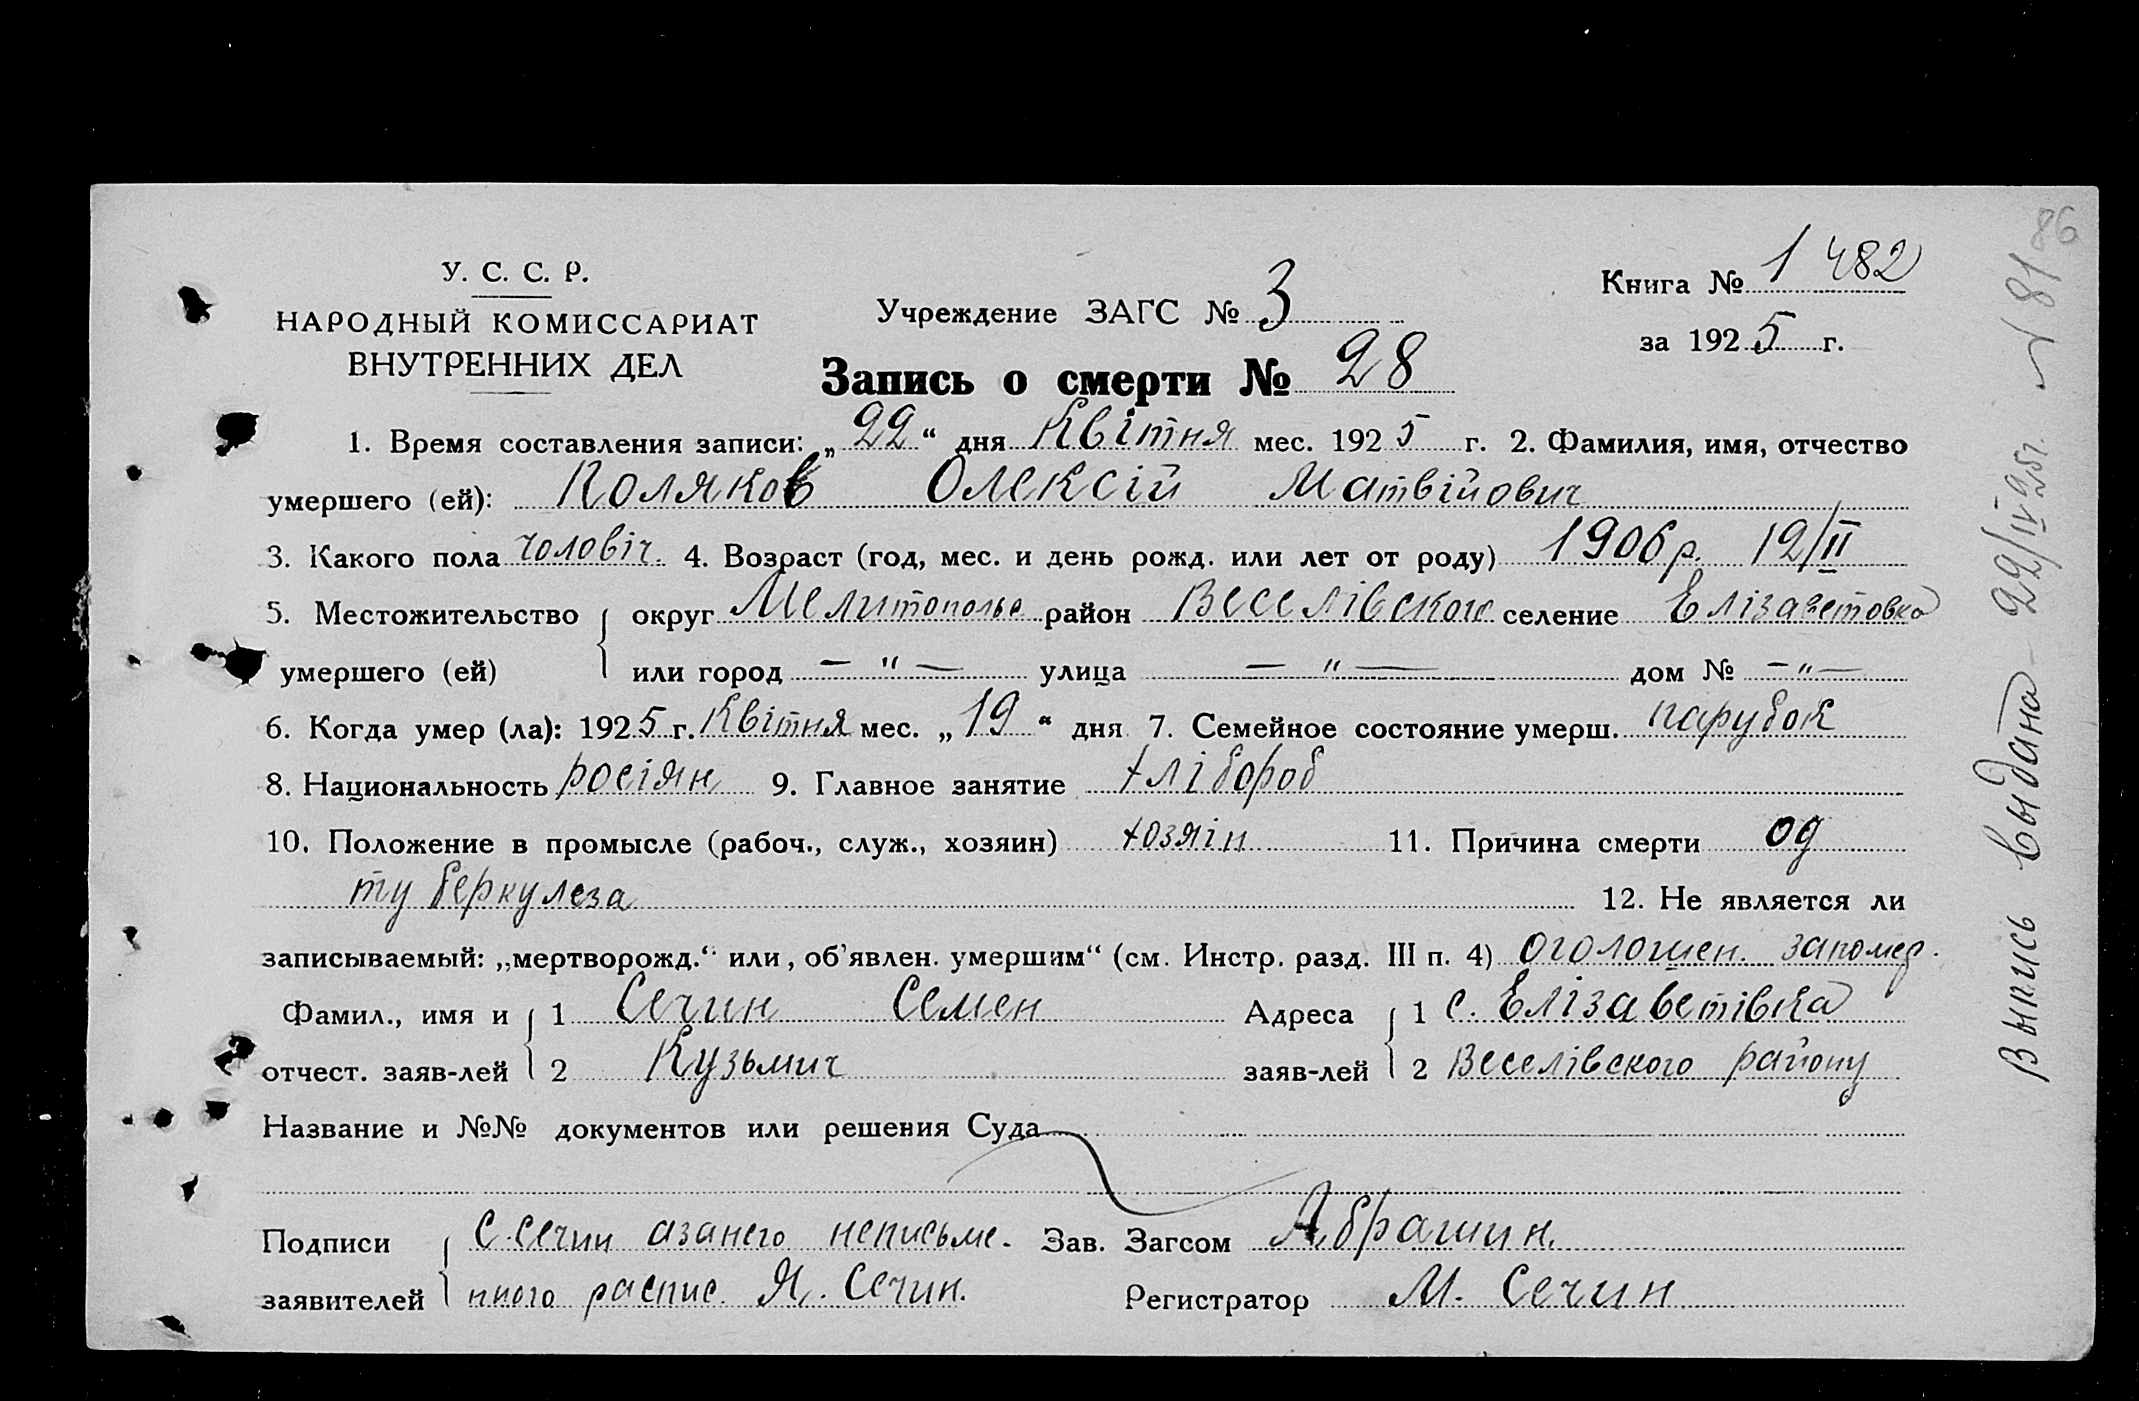 86
У. С. С. Р.
НАРОДНЫЙ КОМИССАРИАТ
ВНУТРЕННИХ ДЕЛ
Учреждение ЗАГС № 3
Книга № 1 482
за 1925 г.
Запись о смерти № 28
1. Время составления записи: „22“ дня Квітня мес. 1925 г. 2. Фамилия, имя, отчество
умершего (ей): Поляков Олексій Матвійович
3. Какого пола чоловіч. 4. Возраст (год, мес. и день рожд. или лет от роду) 1906 р. 12/II
5. Местожительство округ Мелитопольс район Веселівского селение Елізаветовка
умершего (ей) или город — " — улица — " — дом № — " —
6. Когда умер (ла): 1925 г. Квітня мес. „19“ дня 7. Семейное состояние умерш. парубок
8. Национальность росіян 9. Главное занятие хлібороб
10. Положение в промысле (рабоч., служ., хозяин) хозяін 11. Причина смерти од
туберкулеза 12. Не является ли
записываемый: „мертворожд.“ или, об'явлен. умершим“ (см. Инстр. разд. III п. 4) оголошен. запомер.
Фамил., имя и 1 Сечин Семен Адреса 1 с. Елізаветівка
отчест. заяв-лей 2 Кузьмич заяв-лей 2 Веселівского району
Название и №№ документов или решения Суда
Подписи С. Сечин азанего неписьме- Зав. Загсом Абрашин.
заявителей нного распис. Я. Сечин. Регистратор М. Сечин
Выпись выдана 22/IV 25г. № 81